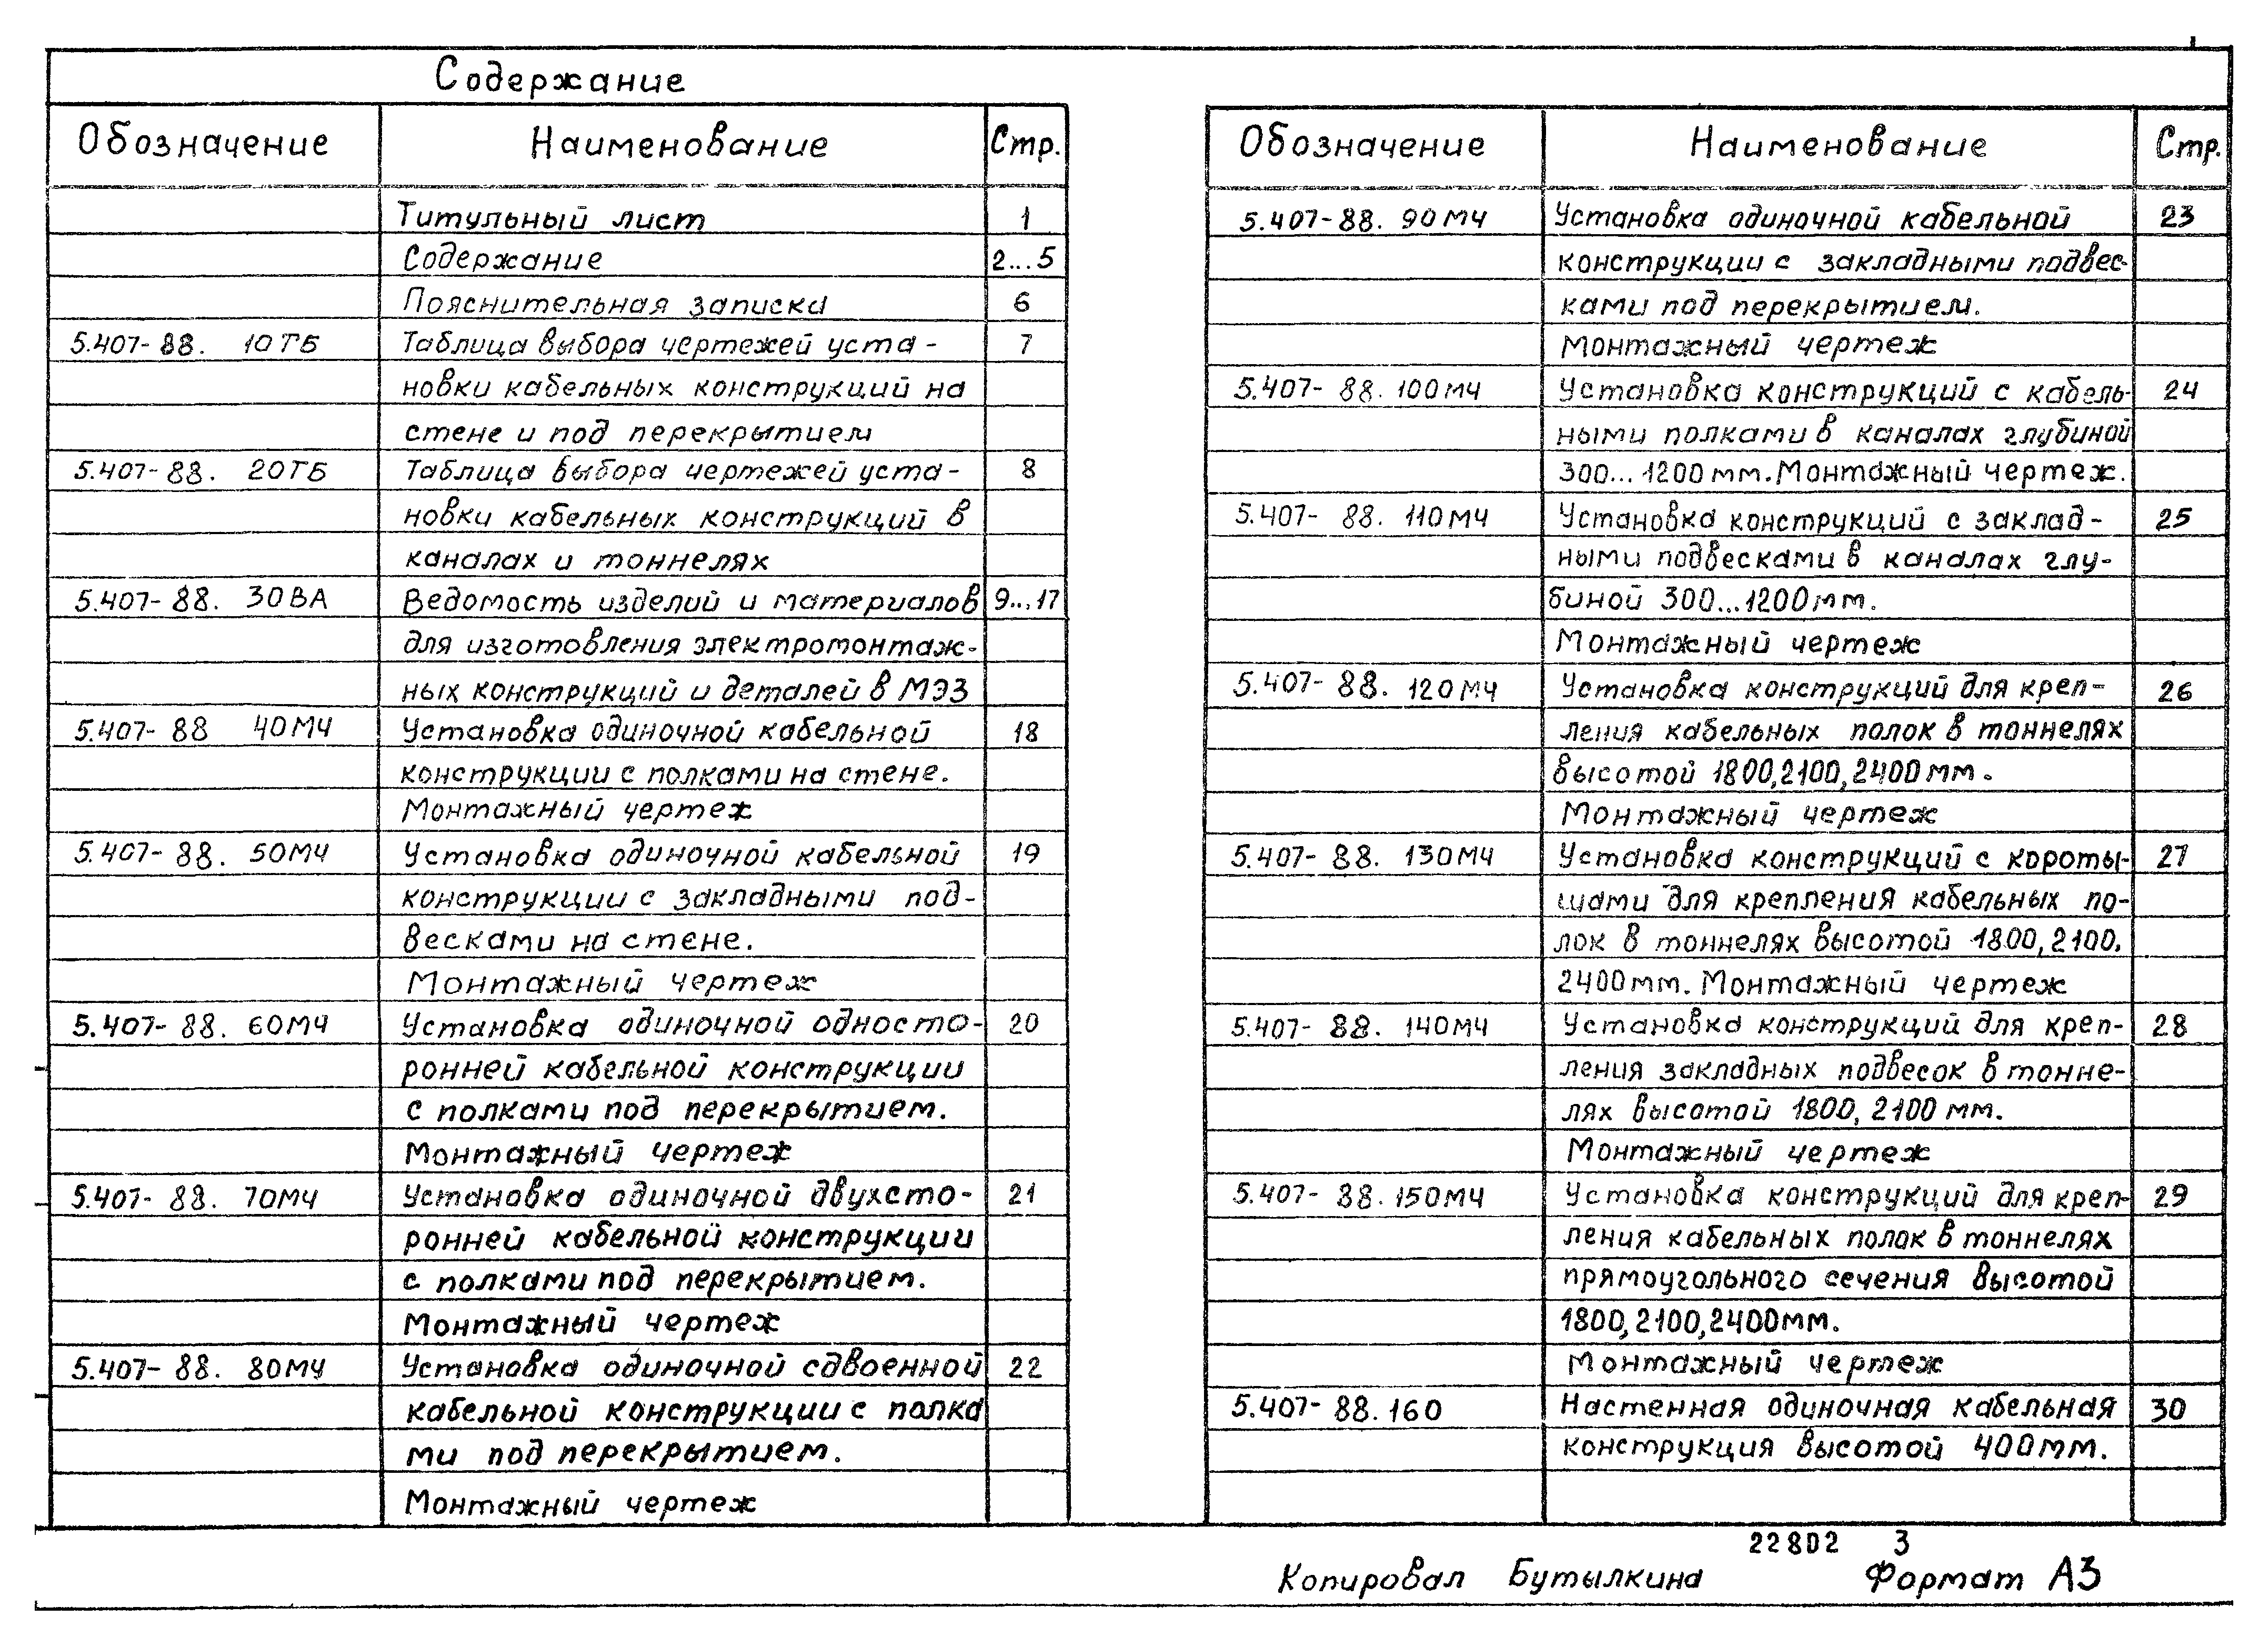 Содержание
Обозначение Наименование Стр.
Титульный лист 1
Содержание 2...5
Пояснительная записка 6
5.407-88. 10ТБ Таблица выбора чертежей уста- 7
новки кабельных конструкций на
стене и под перекрытием
5.407-88. 20ТБ Таблица выбора чертежей уста- 8
новки кабельных конструкций в
каналах и тоннелях
5.407-88. 30ВА Ведомость изделий и материалов 9...17
для изготовления электромонтаж-
ных конструкций и деталей в МЭЗ
5.407-88 40МЧ Установка одиночной кабельной 18
конструкции с полками на стене.
Монтажный чертеж
5.407-88. 50МЧ Установка одиночной кабельной 19
конструкции с закладными под-
весками на стене.
Монтажный чертеж
5.407-88. 60МЧ Установка одиночной односто- 20
ронней кабельной конструкции
с полками под перекрытием.
Монтажный чертеж
5.407-88. 70МЧ Установка одиночной двухсто- 21
ронней кабельной конструкции
с полками под перекрытием.
Монтажный чертеж
5.407-88. 80МЧ Установка одиночной сдвоенной 22
кабельной конструкции с полка
ми под перекрытием.
Монтажный чертеж
Обозначение Наименование Стр.
5.407-88. 90МЧ Установка одиночной кабельной 23
конструкции с закладными подвес-
ками под перекрытием.
Монтажный чертеж
5.407-88. 100МЧ Установка конструкций с кабель- 24
ными полками в каналах глубиной
300...1200мм. Монтажный чертеж.
5.407-88. 110МЧ Установка конструкций с заклад- 25
ными подвесками в каналах глу-
биной 300...1200мм.
Монтажный чертеж
5.407-88. 120МЧ Установка конструкций для креп- 26
ления кабельных полок в тоннелях
высотой 1800,2100,2400мм.
Монтажный чертеж
5.407-88. 130МЧ Установка конструкций с короты- 27
шами для крепления кабельных по-
лок в тоннелях высотой 1800,2100.
2400мм. Монтажный чертеж
5.407-88. 140МЧ Установка конструкций для креп- 28
ления закладных подвесок в тонне-
лях высотой 1800, 2100мм.
Монтажный чертеж
5.407-88.150МЧ Установка конструкций для креп- 29
ления кабельных полок в тоннелях
прямоугольного сечения высотой
1800,2100,2400мм.
Монтажный чертеж
5.407-88.160 Настенная одиночная кабельная 30
конструкция высотой 400мм.
22802 3
Копировал Бутылкина Формат А3